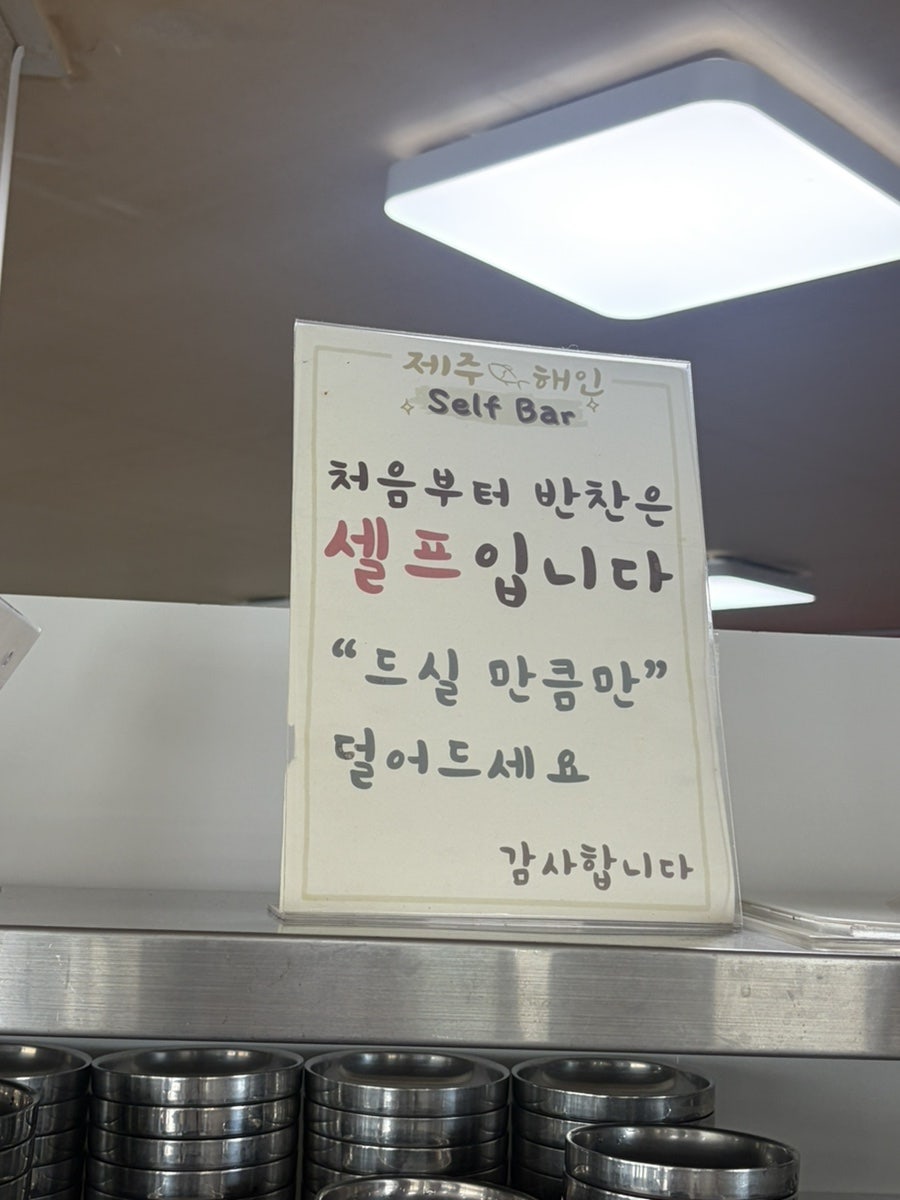 제주 해인
Self Bar
처음부터 반찬은
셀프입니다
“드실 만큼만”
덜어드세요
감사합니다